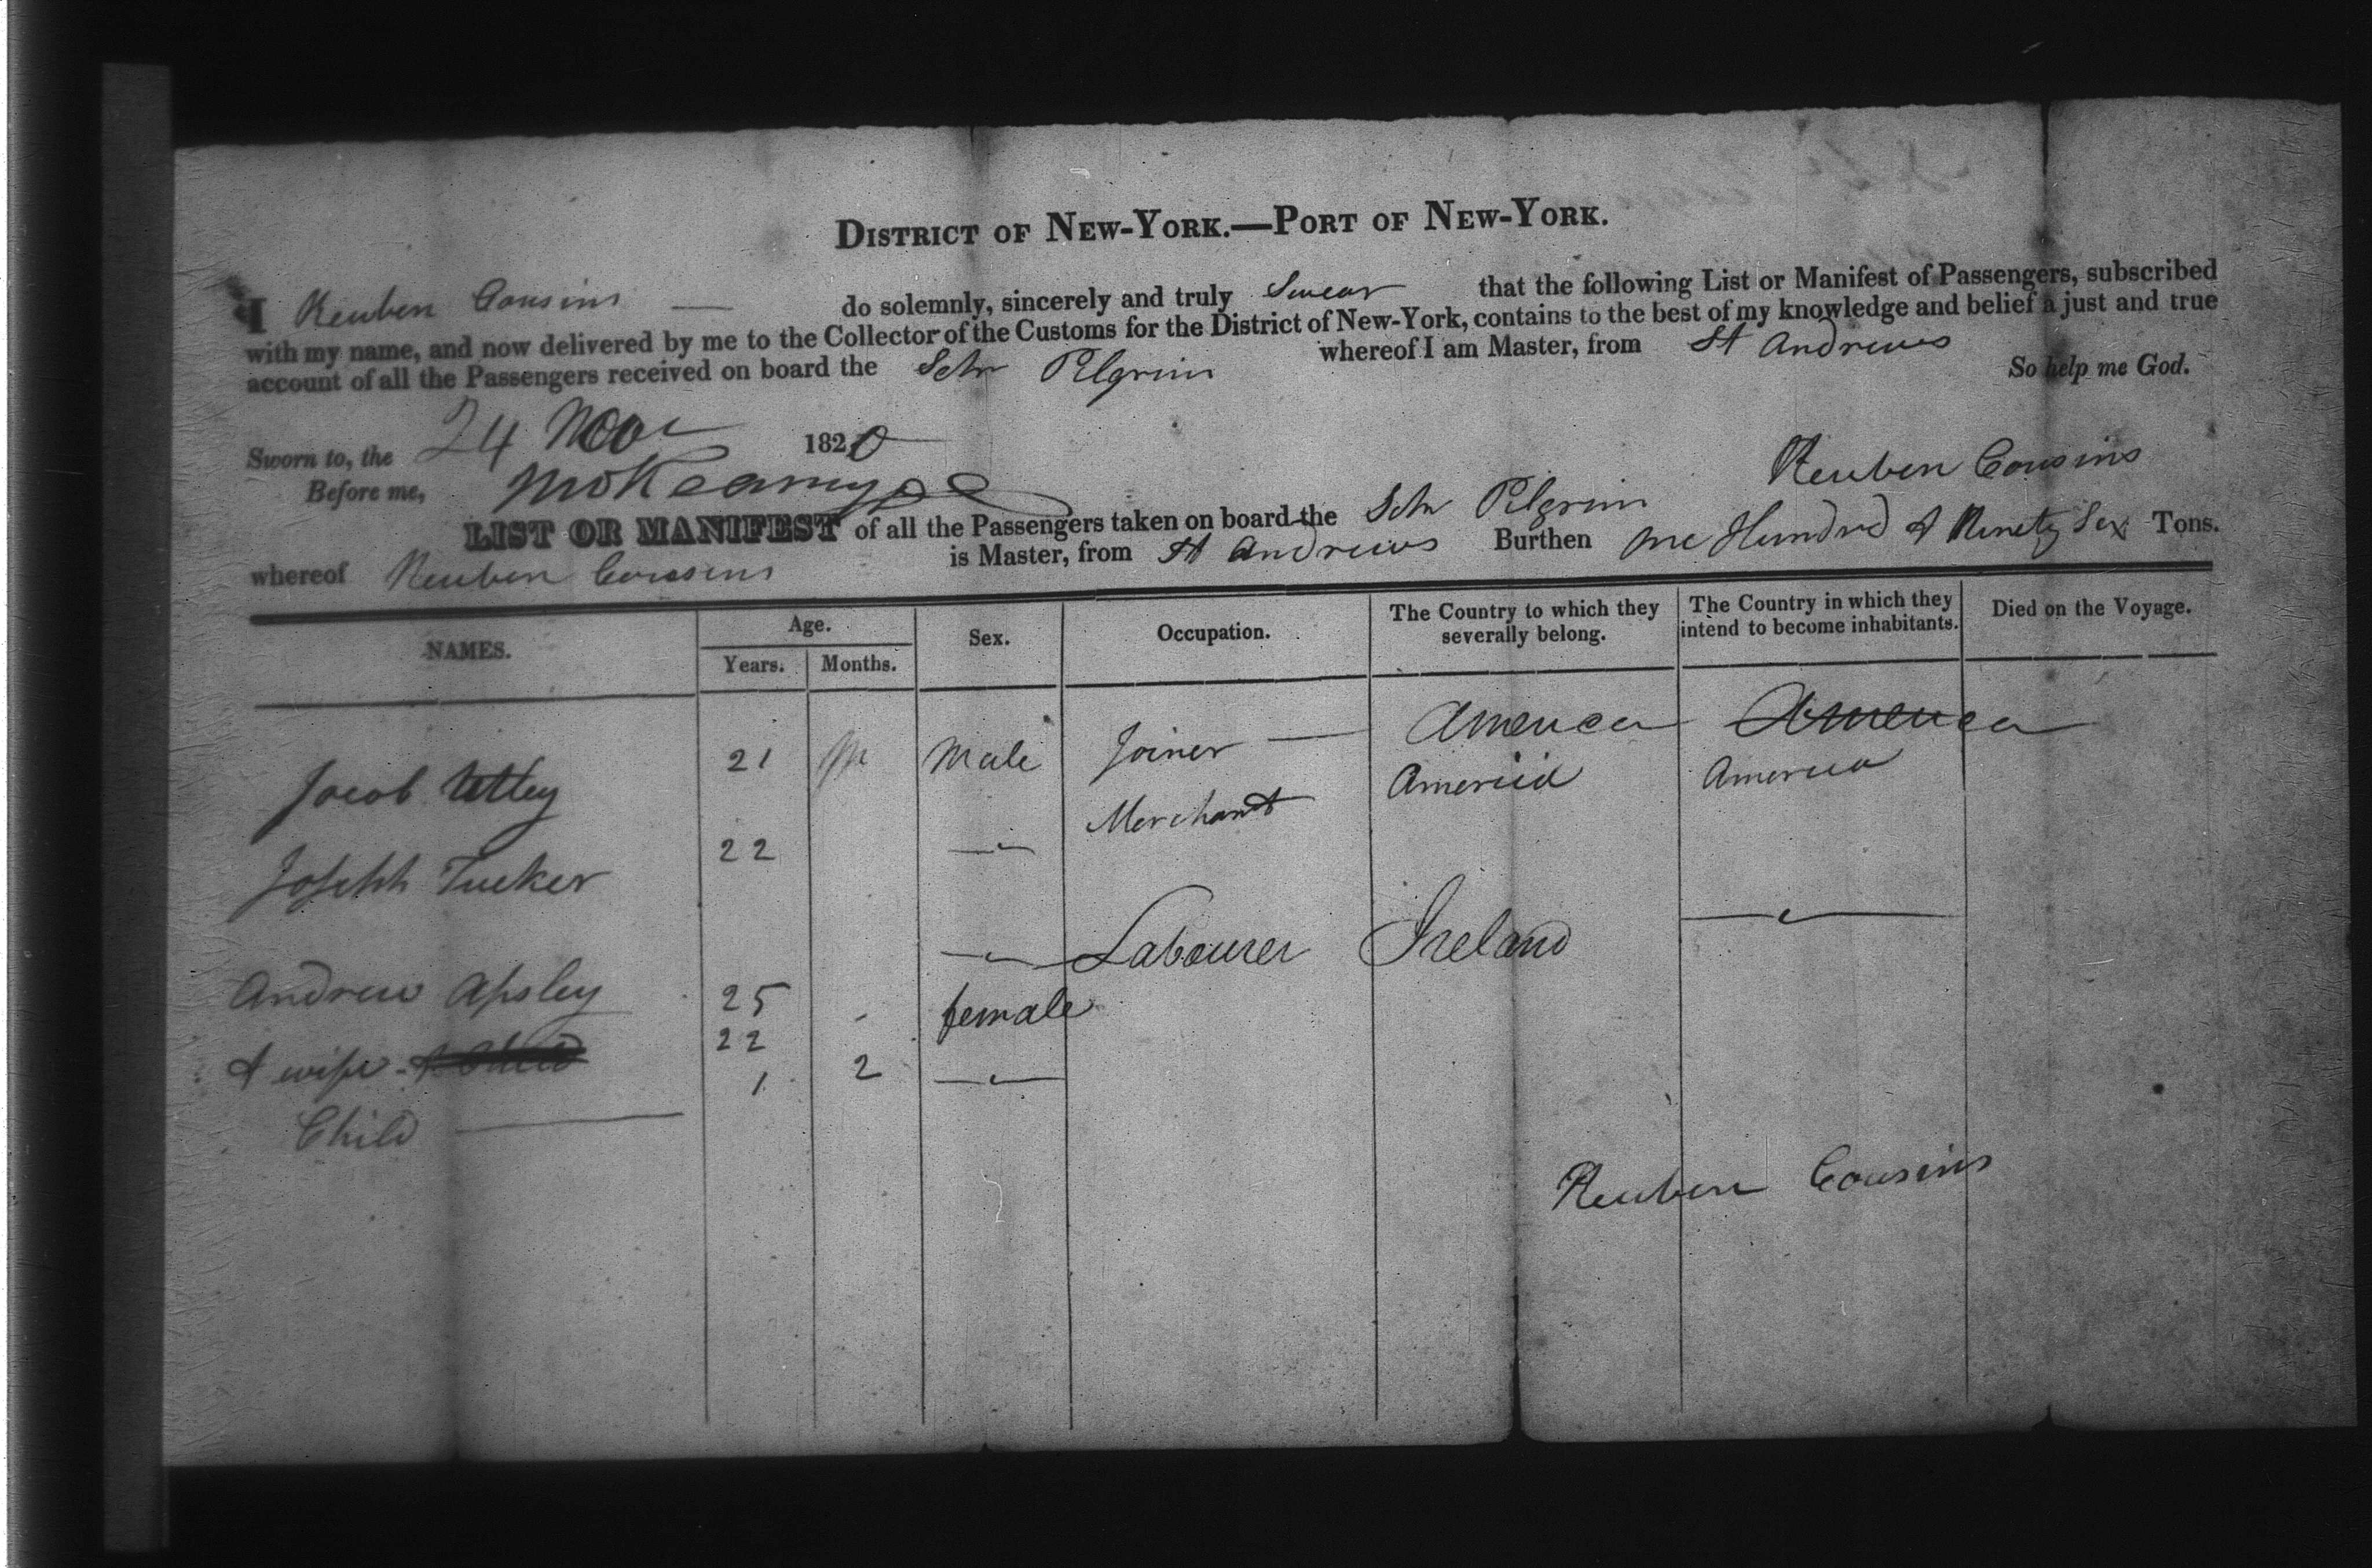 DISTRICT OF NEW-YORK.—PORT OF NEW-YORK.
I Reuben Cousins — do solemnly, sincerely and truly Swear that the following List or Manifest of Passengers, subscribed
with my name, and now delivered by me to the Collector of the Customs for the District of New-York, contains to the best of my knowledge and belief a just and true
account of all the Passengers received on board the Schr Pilgrim whereof I am Master, from St Andrews
So help me God.
Sworn to, the 24 Nov 1820
Reuben Cousins
Before me,
LIST OR MANIFEST of all the Passengers taken on board the Schr Pilgrim
whereof Reuben Cousins is Master, from St Andrews Burthen One Hundred & Ninety Six Tons.
NAMES. Age. Sex. Occupation. The Country to which they severally belong. The Country in which they intend to become inhabitants. Died on the Voyage.
Years. Months.
Jacob Utley 21 M Male Joiner — America America
Joseph Tucker 22 Merchant America America
Andrew Apsley 25 - Labourer Ireland
& wife & Child 22 female
Child — 1 2
Reuben Cousins